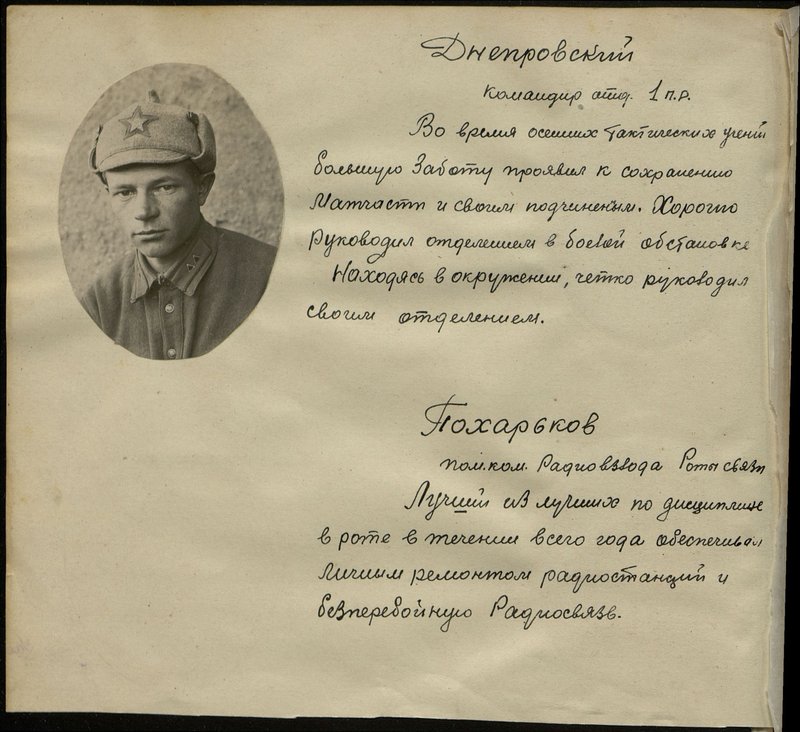 Днепровский
командир отд. 1 п.р.
Во время осених тактических учений
большую заботу проявил к сохранению
Матчасти и своим подчиненым. Хорошо
руководил отделением в боевой обстановке
Находясь в окружении, четко руководил
своим отделением.
Похарьков
пом.ком. Радиовзвода Роты связи
Лучший из лучших по дисциплине
в роте в течении всего года обеспечивал
личным ремонтом радиостанций и
безперебойную Радиосвязь.